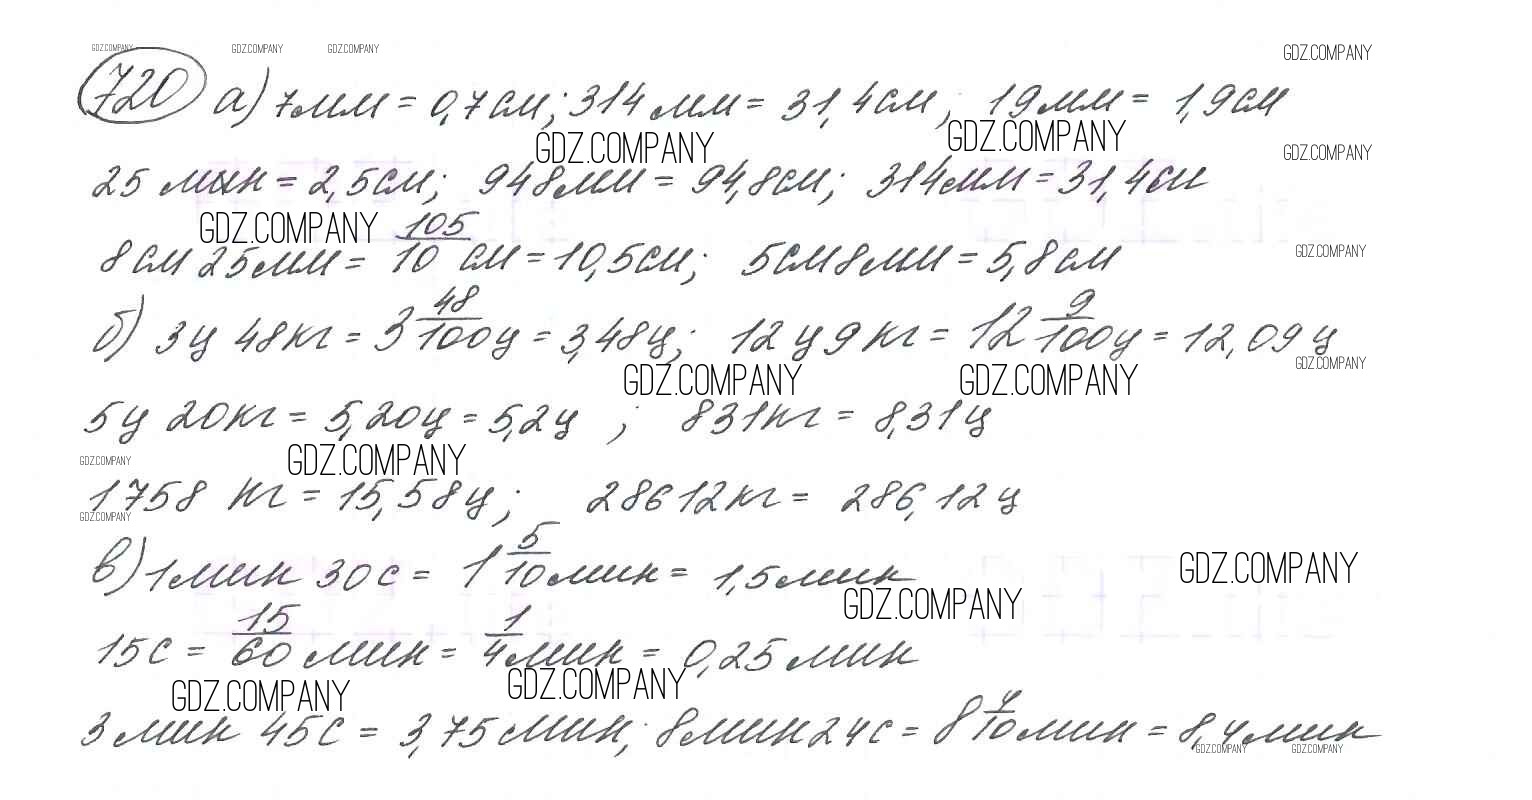 GDZ.COMPANY GDZ.COMPANY GDZ.COMPANY GDZ.COMPANY
720 а) 7мм = 0,7см; 314мм = 31,4см; 19мм = 1,9см
GDZ.COMPANY GDZ.COMPANY GDZ.COMPANY
25 мин = 2,5см; 948мм = 94,8см; 314мм = 31,4см
GDZ.COMPANY
8см 25мм = 105/10 см = 10,5см; 5см 8мм = 5,8см
GDZ.COMPANY
б) 3ц 48кг = 3 48/100 ц = 3,48ц; 12ц 9кг = 12 9/100 ц = 12,09ц
GDZ.COMPANY
GDZ.COMPANY GDZ.COMPANY
5ц 20кг = 5,20ц = 5,2ц ; 831кг = 8,31ц
GDZ.COMPANY GDZ.COMPANY
1758 кг = 15,58ц; 28612кг = 286,12ц
GDZ.COMPANY
в) 1мин 30с = 1 5/10 мин = 1,5мин
GDZ.COMPANY
GDZ.COMPANY
15с = 15/60 мин = 1/4 мин = 0,25мин
GDZ.COMPANY GDZ.COMPANY
3мин 45с = 3,75мин; 8мин 24с = 8 4/10 мин = 8,4мин
GDZ.COMPANY GDZ.COMPANY